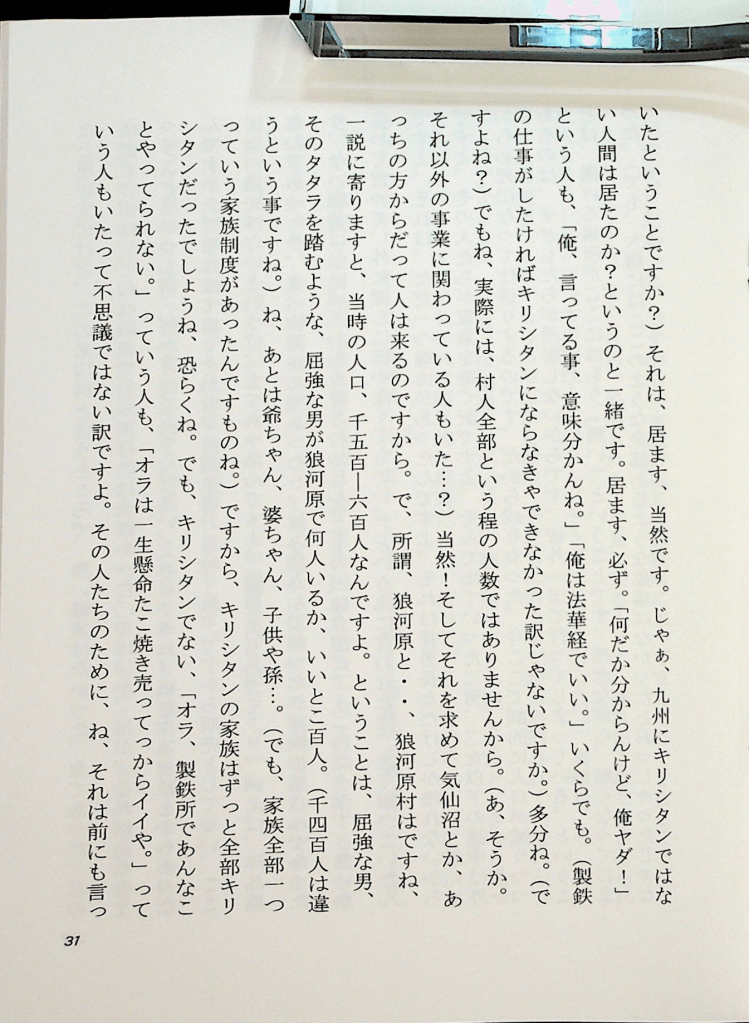 いたということですか？）それは、居ます、当然です。じゃぁ、九州にキリシタンではな
い人間は居たのか？というのと一緒です。居ます、必ず。「何だか分からんけど、俺ヤダ！」
という人も、「俺、言ってる事、意味分かんね。」「俺は法華経でいい。」いくらでも。（製鉄
の仕事がしたければキリシタンにならなきゃできなかった訳じゃないですか。）多分ね。（で
すよね？）でもね、実際には、村人全部という程の人数ではありませんから。（あ、そうか。
それ以外の事業に関わっている人もいた…？）当然！そしてそれを求めて気仙沼とか、あ
っちの方からだって人は来るのですから。で、所謂、狼河原と・・、狼河原村はですね、
一説に寄りますと、当時の人口、千五百―六百人なんですよ。ということは、屈強な男、
そのタタラを踏むような、屈強な男が狼河原で何人いるか、いいとこ百人。（千四百人は違
うという事ですね。）ね、あとは爺ちゃん、婆ちゃん、子供や孫…。（でも、家族全部一つ
っていう家族制度があったんですものね。）ですから、キリシタンの家族はずっと全部キリ
シタンだったでしょうね、恐らくね。でも、キリシタンでない、「オラ、製鉄所であんなこ
とやってられない。」っていう人も、「オラは一生懸命たこ焼き売ってっからイイや。」って
いう人もいたって不思議ではない訳ですよ。その人たちのために、ね、それは前にも言っ
31